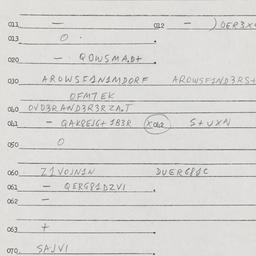 011 – 012 – ) OER3X
013 O .
020 – . QOWSMAD+
030 AROWSF1N1MDORF AROWSF1ND3RS+
OFM7EK
040 OVD3RAND3R3RZA.T
041 – QAKREJG+1B3R X042 S+UXN
050 O
060 Z1VOJN1N DUERG8JC
061 – QERG81DZVI
062 –
063 +
070 SAJVI